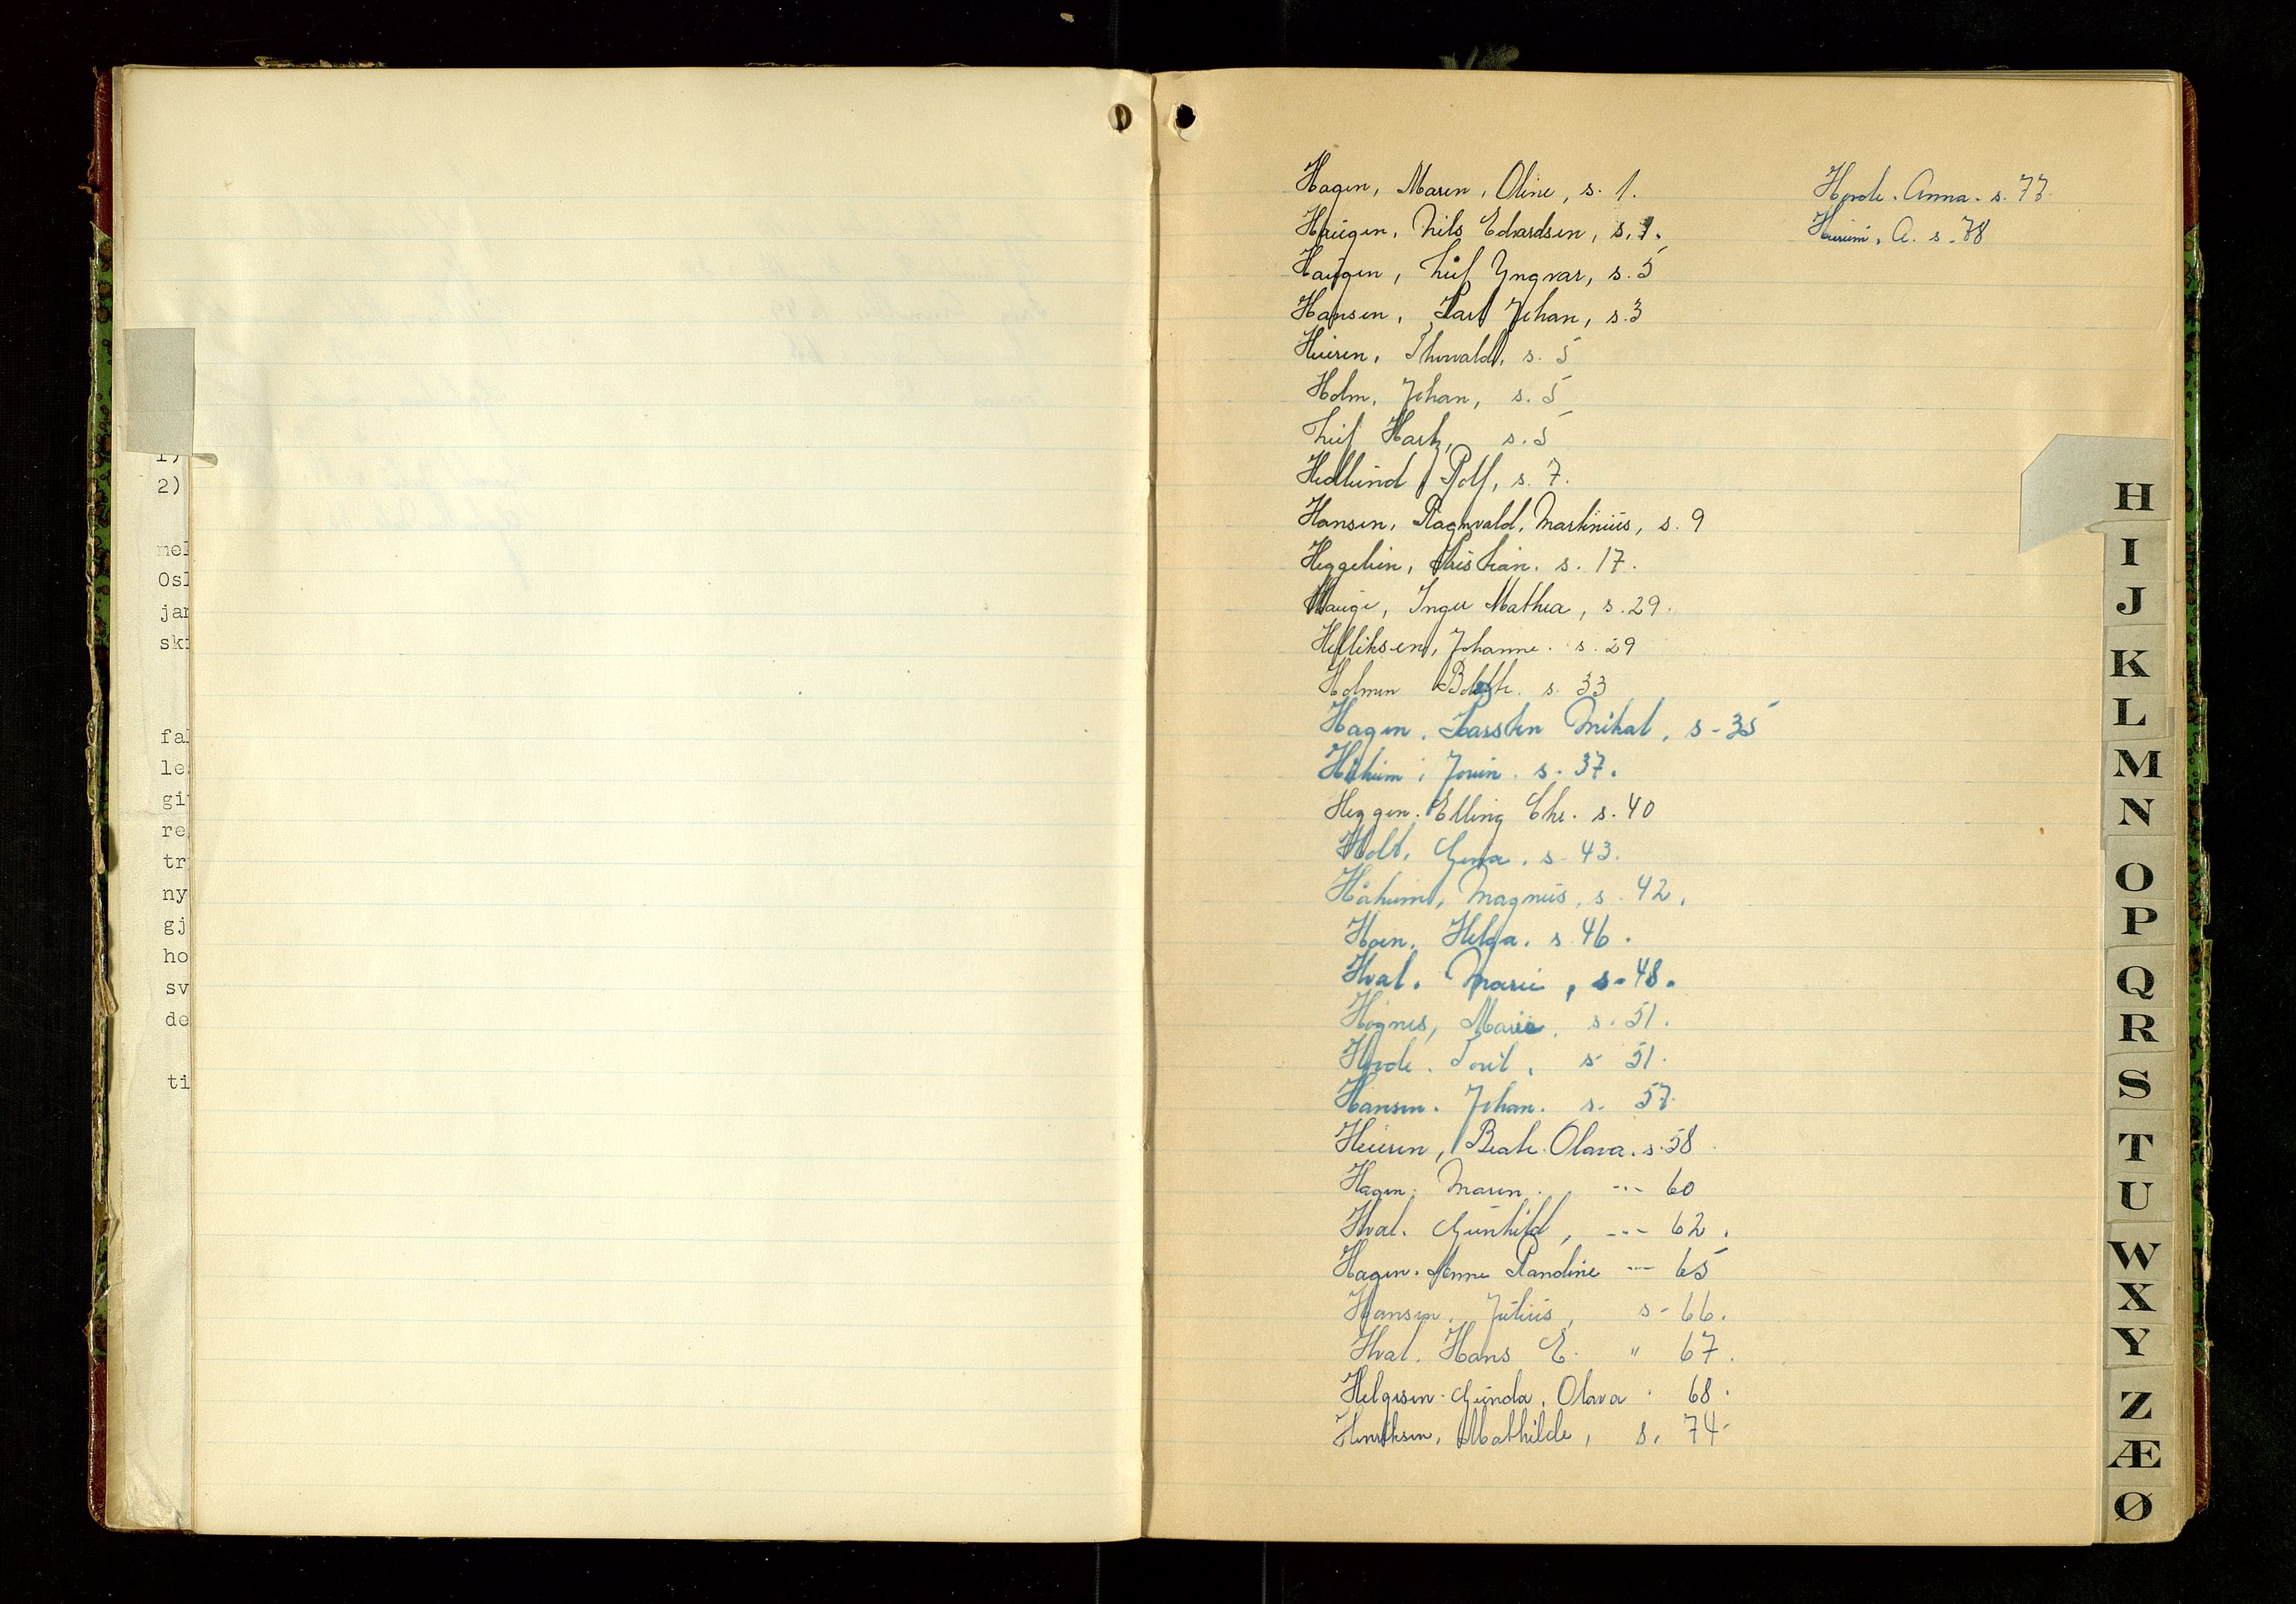 1)
2)
mel
Osl
jan
ski
fal
le
gi
re
tr
ny
gj
ho
sv
de
ti
Hagen, Maren, Oline, s. 1.
Haugen, Nils Edvardsen, s. 1.
Haugen, Leif Yngvar, s. 5
Hansen, Karl Johan, s. 3
Heieren, Thorvald, s. 5
Holm, Johan, s. 5
Leif Hartz, s. 5
Hedlund, Rolf, s. 7.
Hansen, Ragnvald, Martinius, s. 9
Heggelien, Kristian. s. 17.
Hauge, Inger Mathea, s. 29.
Helliksen, Johanne. s. 29
Holmen s. 33
Hagen. Karsten Mikal. s- 35
Håheim, s. 37.
Heggen. Elling Chr. s. 40
Holt, s. 43.
Håheim, Magnus, s. 42.
Hoen. Helga. s. 46.
Hval. Marie, s. 48.
Høgnes, Marie, s. 51.
Horde. Toril, s- 51.
Hansen. Johan. s. 57.
Heieren, Beate Olava. s. 58
Hagen. Maren. --- 60
Hval. Gunhild, --- 62.
Hagen. Anne Randine --- 65
Hansen. Julius, s- 66.
Hval. Hans E. " 67.
Helgesen. Gunda, Olava 68.
Henriksen, Mathilde, s. 74-
Horde. Anna. s. 77.
A. s. 78
H
I
J
K
L
M
N
O
P
Q
R
S
T
U
W
X
Y
Z
Æ
Ø